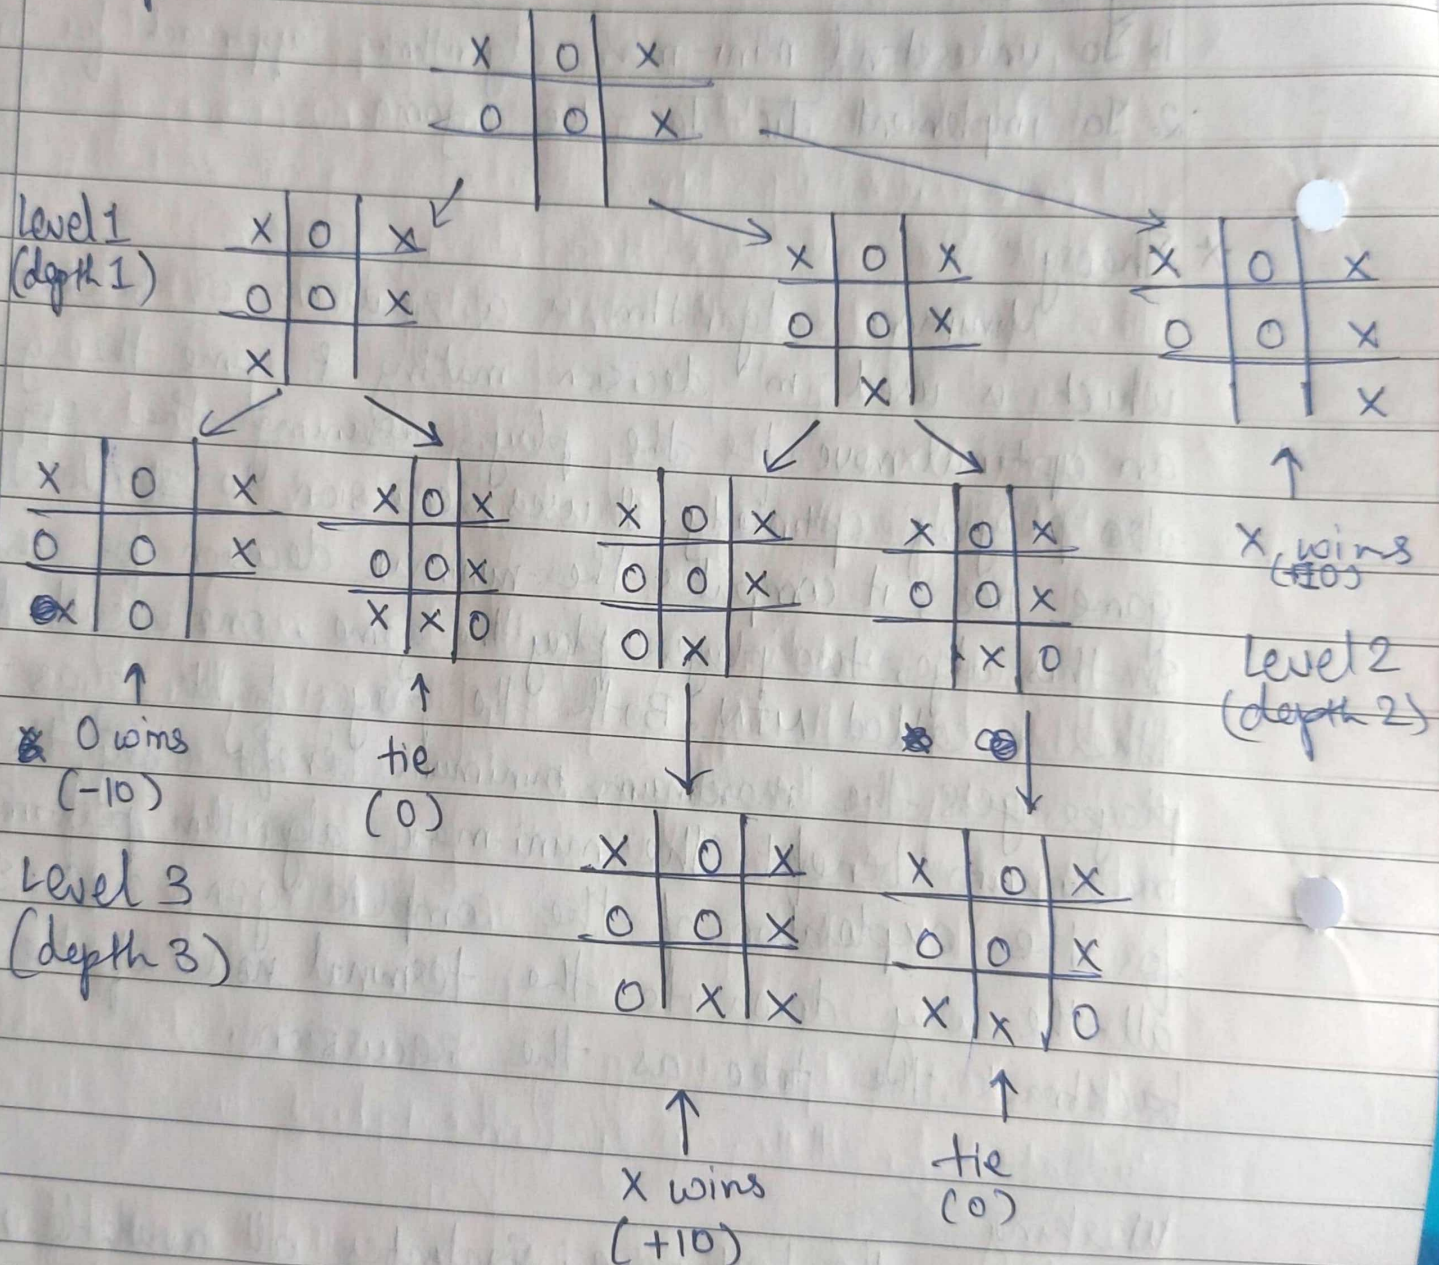 X O X
O O X
Level 1
(depth 1)
X O X
O O X
X
X O X
O O X
X
X O X
O O X
X
X O X
O O X
X O
X O X
O O X
X X O
X O X
O O X
O X
X O X
O O X
X O
X wins
(+10)
Level 2
(depth 2)
O wins
(-10)
tie
(0)
Level 3
(depth 3)
X O X
O O X
O X X
X O X
O O X
X X O
X wins
(+10)
tie
(0)